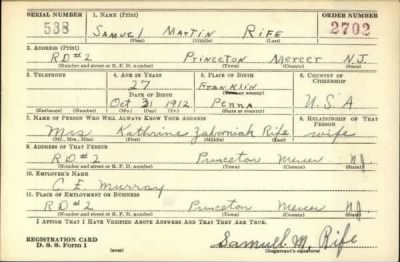 SERIAL NUMBER 1. NAME (Print) ORDER NUMBER
538 SAMUEL MARTIN RIFE 2702
(First) (Middle) (Last)
2. ADDRESS (Print)
RD#2 PRINCETON MERCER N.J.
(Number and street or R. F. D. number) (Town) (County) (State)
3. TELEPHONE 4. AGE IN YEARS 5. PLACE OF BIRTH 6. COUNTRY OF CITIZENSHIP
27 Franklin
DATE OF BIRTH (Town or county)
Oct 31 1912 Penna U.S.A
(Exchange) (Number) (Mo.) (Day) (Yr.) (State or country)
7. NAME OF PERSON WHO WILL ALWAYS KNOW YOUR ADDRESS 8. RELATIONSHIP OF THAT PERSON
Mrs Kathrine Rife wife
(Mr., Mrs., Miss) (First) (Middle) (Last)
9. ADDRESS OF THAT PERSON
RD#2 Princeton Mercer NJ.
(Number and street or R. F. D. number) (Town) (County) (State)
10. EMPLOYER'S NAME
C. E. Murray
11. PLACE OF EMPLOYMENT OR BUSINESS
RD#2 Princeton Mercer NJ.
(Number and street or R. F. D. number) (Town) (County) (State)
I AFFIRM THAT I HAVE VERIFIED ABOVE ANSWERS AND THAT THEY ARE TRUE.
REGISTRATION CARD
D. S. S. Form 1 (over) Samuel M. Rife
(Registrant's signature)